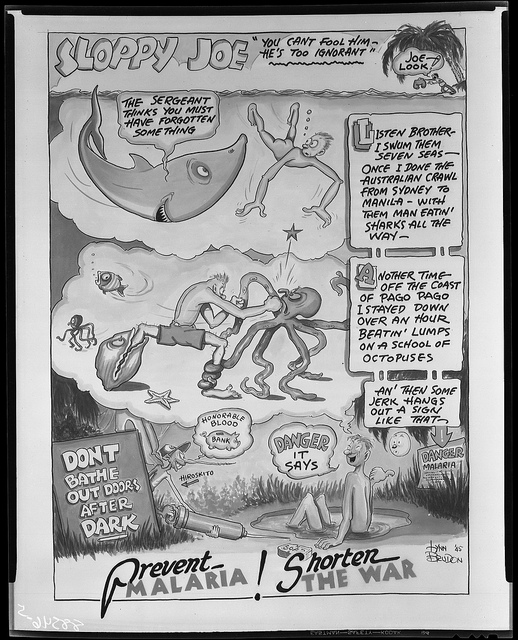 SLOPPY JOE
"YOU CANT FOOL HIM-
HE'S TOO IGNORANT"
JOE
LOOK!
THE SERGEANT
THINKS YOU MUST
HAVE FORGOTTEN
SOMETHING
LISTEN BROTHER-
I SWUM THEM
SEVEN SEAS-
ONCE I DONE THE
AUSTRALIAN CRAWL
FROM SYDNEY TO
MANILA - WITH
THEM MAN EATIN'
SHARKS ALL THE
WAY -
ANOTHER TIME-
OFF THE COAST
OF PAGO PAGO
I STAYED DOWN
OVER AN HOUR
BEATIN' LUMPS
ON A SCHOOL OF
OCTOPUSES
AN' THEN SOME
JERK HANGS
OUT A SIGN
LIKE THAT-
HONORABLE
BLOOD
BANK
DANGER
IT
SAYS
DANGER
MALARIA
DONT
BATHE
OUT DOORS
AFTER
DARK
HIROSKITO
Prevent
MALARIA!
Shorten
THE WAR